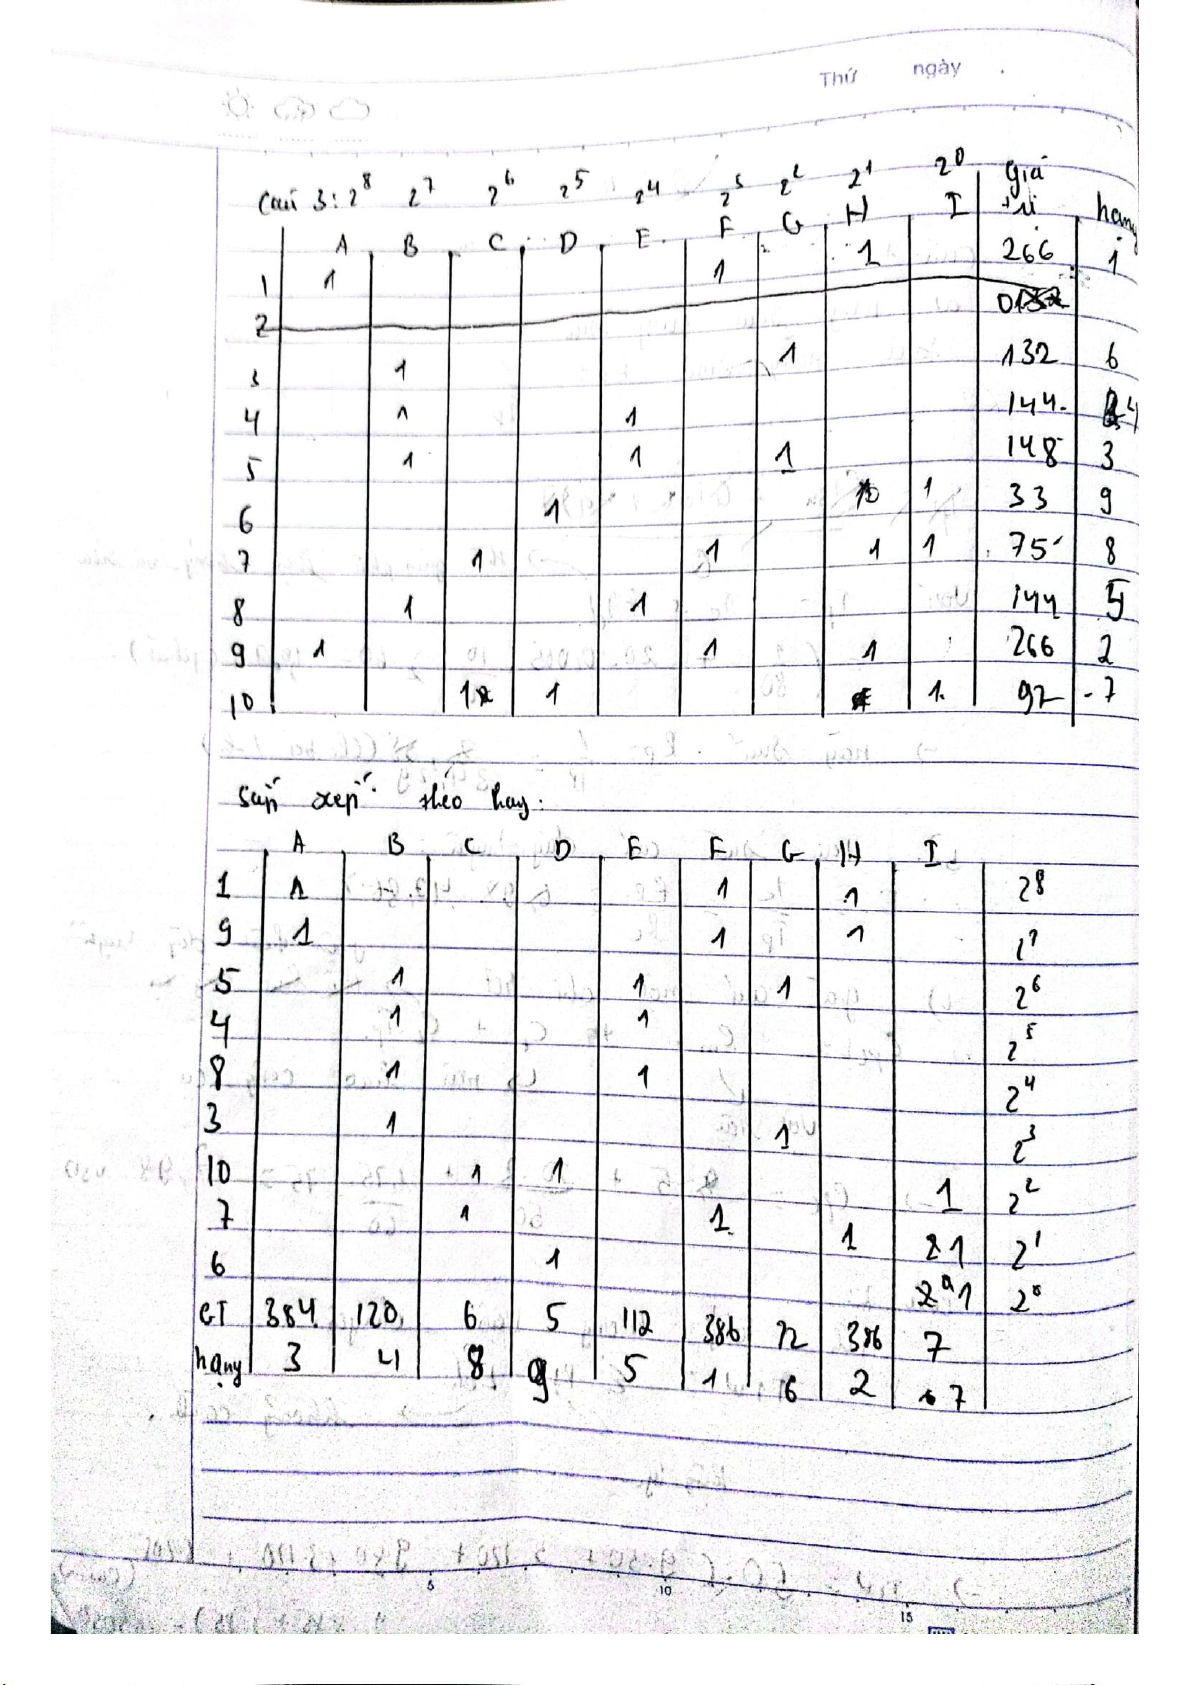 Thứ ngày
Câu 3: 2^8 2^7 2^6 2^5 2^4 2^3 2^2 2^1 2^0 giá trị hạng
A B C D E F G H I
1 1 1 1 266 1
2 0
3 1 1 132 6
4 1 1 144 4
5 1 1 1 148 3
6 1 1 33 9
7 1 1 1 1 75 8
8 1 1 144 5
9 1 1 1 266 2
10 1 1 1 97 7
sắp xếp theo hạng:
A B C D E F G H I
1 1 1 1 2^8
9 1 1 1 2^7
5 1 1 1 2^6
4 1 1 2^5
8 1 1 2^4
3 1 1 2^3
10 1 1 1 2^2
7 1 1 1 1 2^1
6 1 1 2^0
GT 384 120 6 5 112 386 72 386 7
hạng 3 4 8 9 5 1 6 2 7
5
10
15